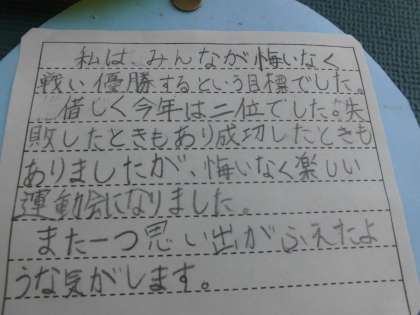 私は、みんなが悔いなく
戦い優勝するという目標でした。
惜しく今年は二位でした。失
敗したときもあり成功したときも
ありましたが、悔いなく楽しい
運動会になりました。
また一つ思い出がふえたよ
うな気がします。